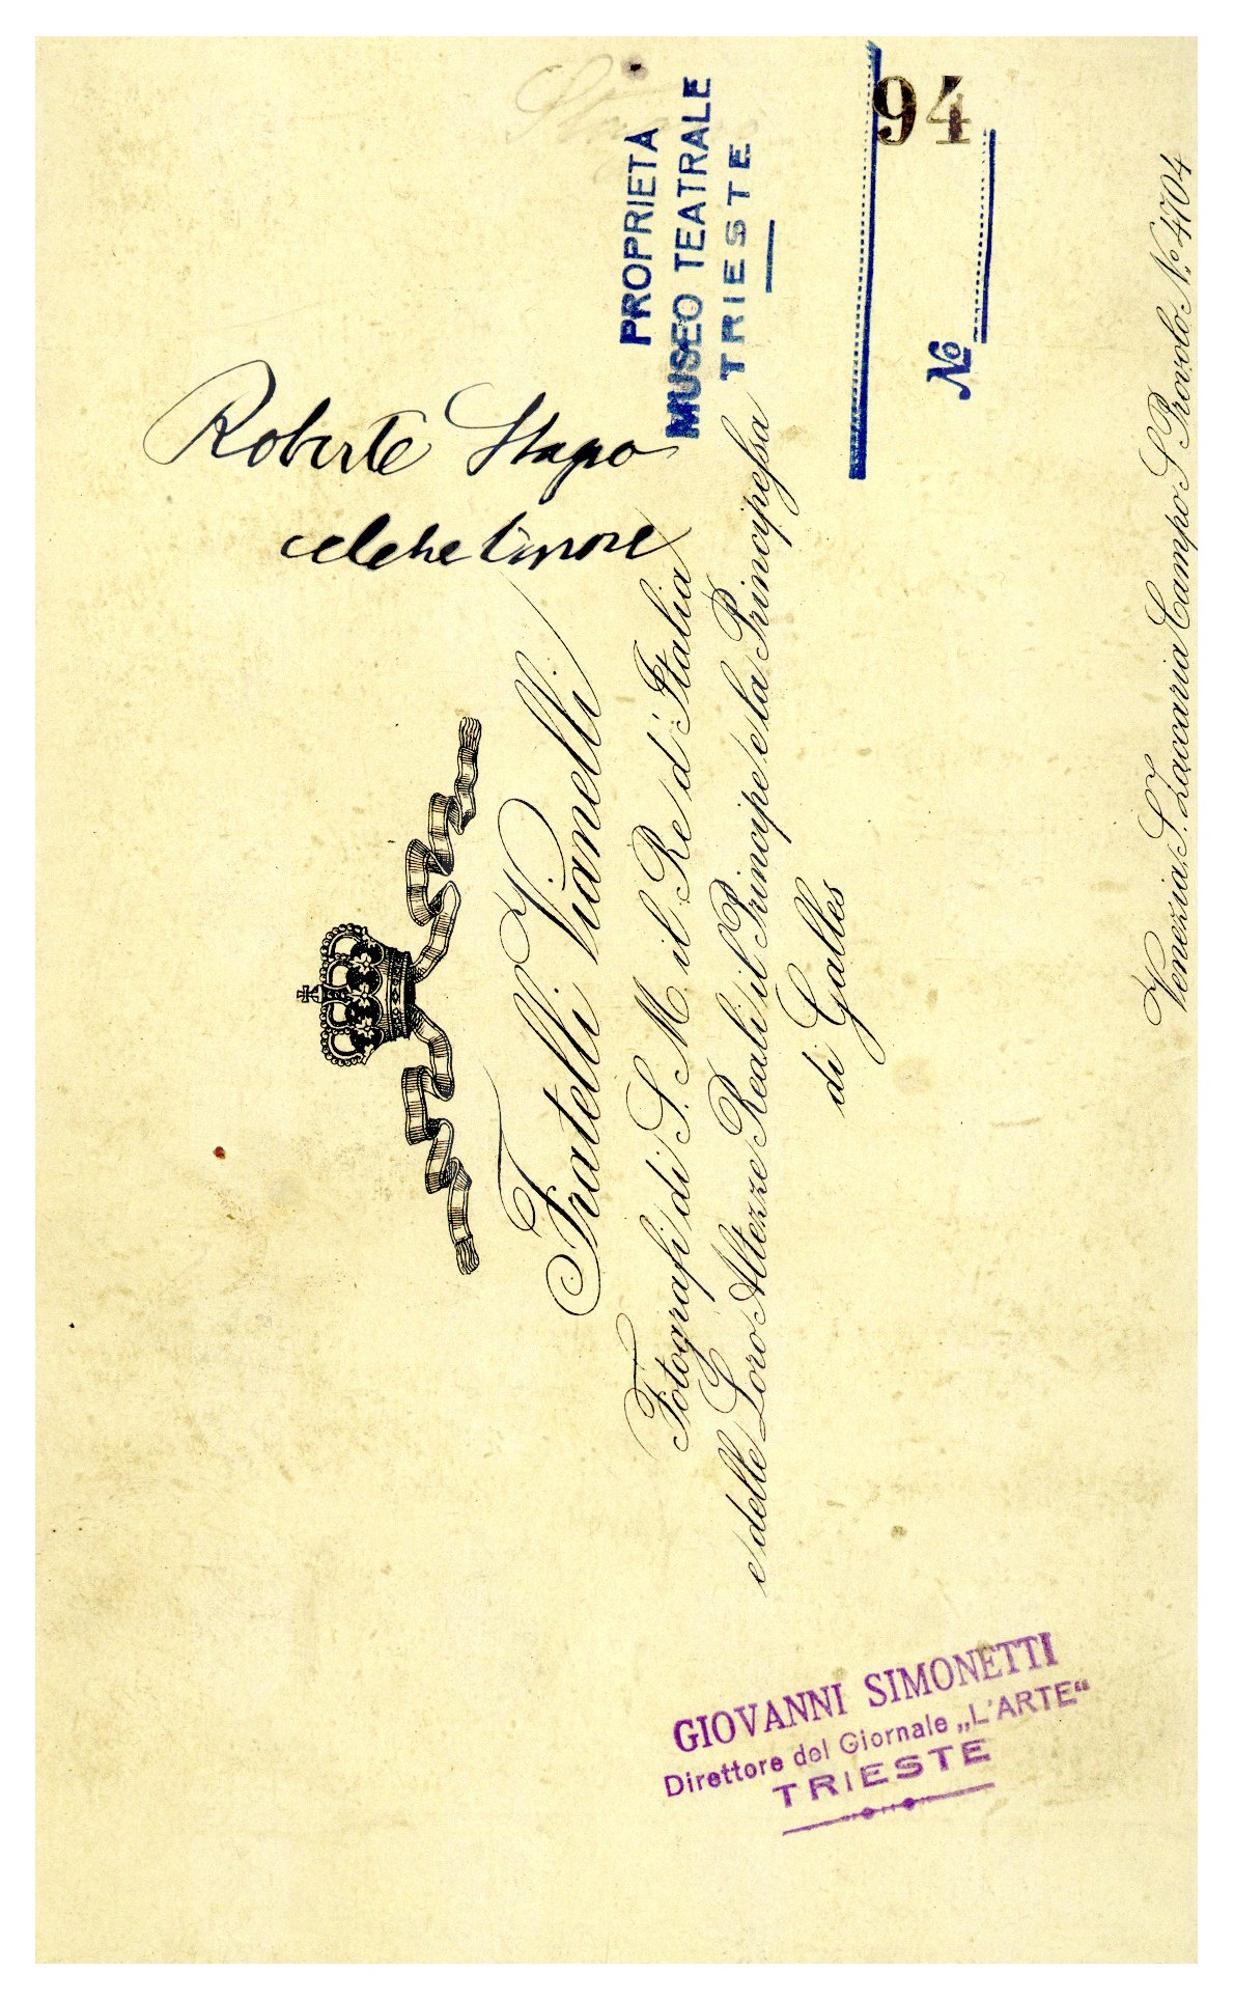 Roberto Stagno
celebre tenore
PROPRIETÀ
MUSEO TEATRALE
TRIESTE
94
No
Fratelli Vianelli
Fotografi di S. M. il Re d'Italia
e delle Loro Altezze Reali il Principe e la Principessa
di Galles
Venezia, S. Zaccaria Campo S. Provolo No. 4704
GIOVANNI SIMONETTI
Direttore del Giornale „L'ARTE“
TRIESTE